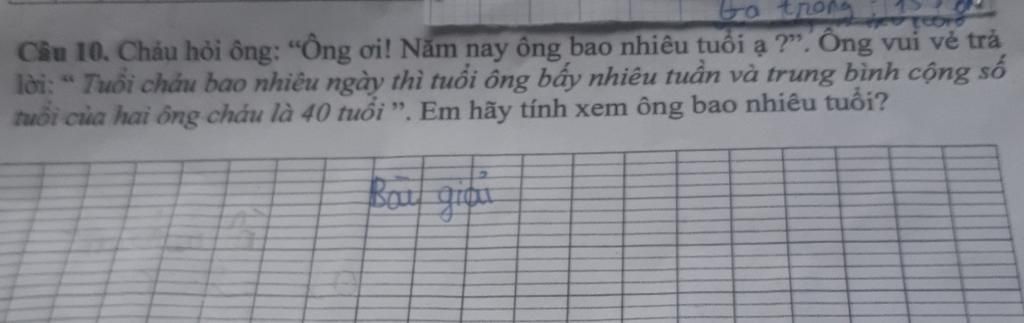 Ga trong : 15
Câu 10. Cháu hỏi ông: “Ông ơi! Năm nay ông bao nhiêu tuổi ạ ?”. Ông vui vẻ trả
lời: “ Tuổi cháu bao nhiêu ngày thì tuổi ông bấy nhiêu tuần và trung bình cộng số
tuổi của hai ông cháu là 40 tuổi ”. Em hãy tính xem ông bao nhiêu tuổi?
Bài giải